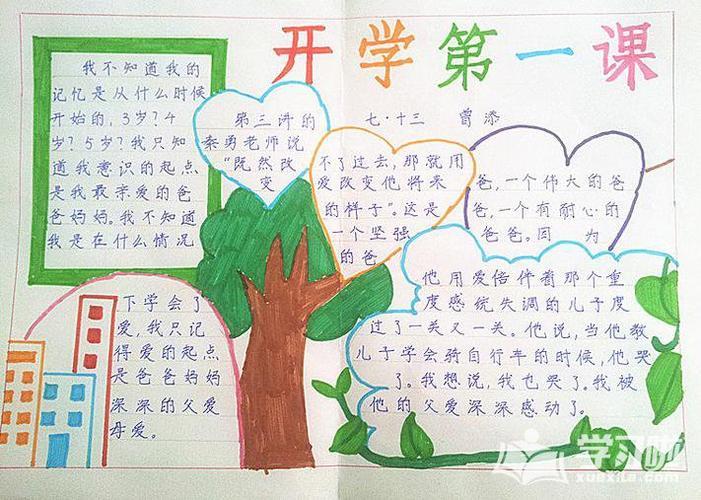 开学第一课
七·十三 曾添
我不知道我的
记忆是从什么时候
开始的，3岁？4
岁？5岁？我只知
道我意识的起点
是我最亲爱的爸
爸妈妈。我不知道
我是在什么情况
下学会了
爱，我只记
得爱的起点
是爸爸妈妈
深深的父爱
母爱。
第三讲的
秦勇老师说
“既然改
变
不了过去，那就用
爱改变他将来
的样子”。这是
一个坚强
的爸
爸，一个伟大的爸
爸，一个有耐心的
爸爸。因 为
他用爱陪伴着那个重
度感统失调的儿子度
过了一关又一关。他说，当他教
儿子学会骑自行车的时候，他哭
了。我想说，我也哭了。我被
他的父爱深深感动了。
学习啦
www.xuexila.com